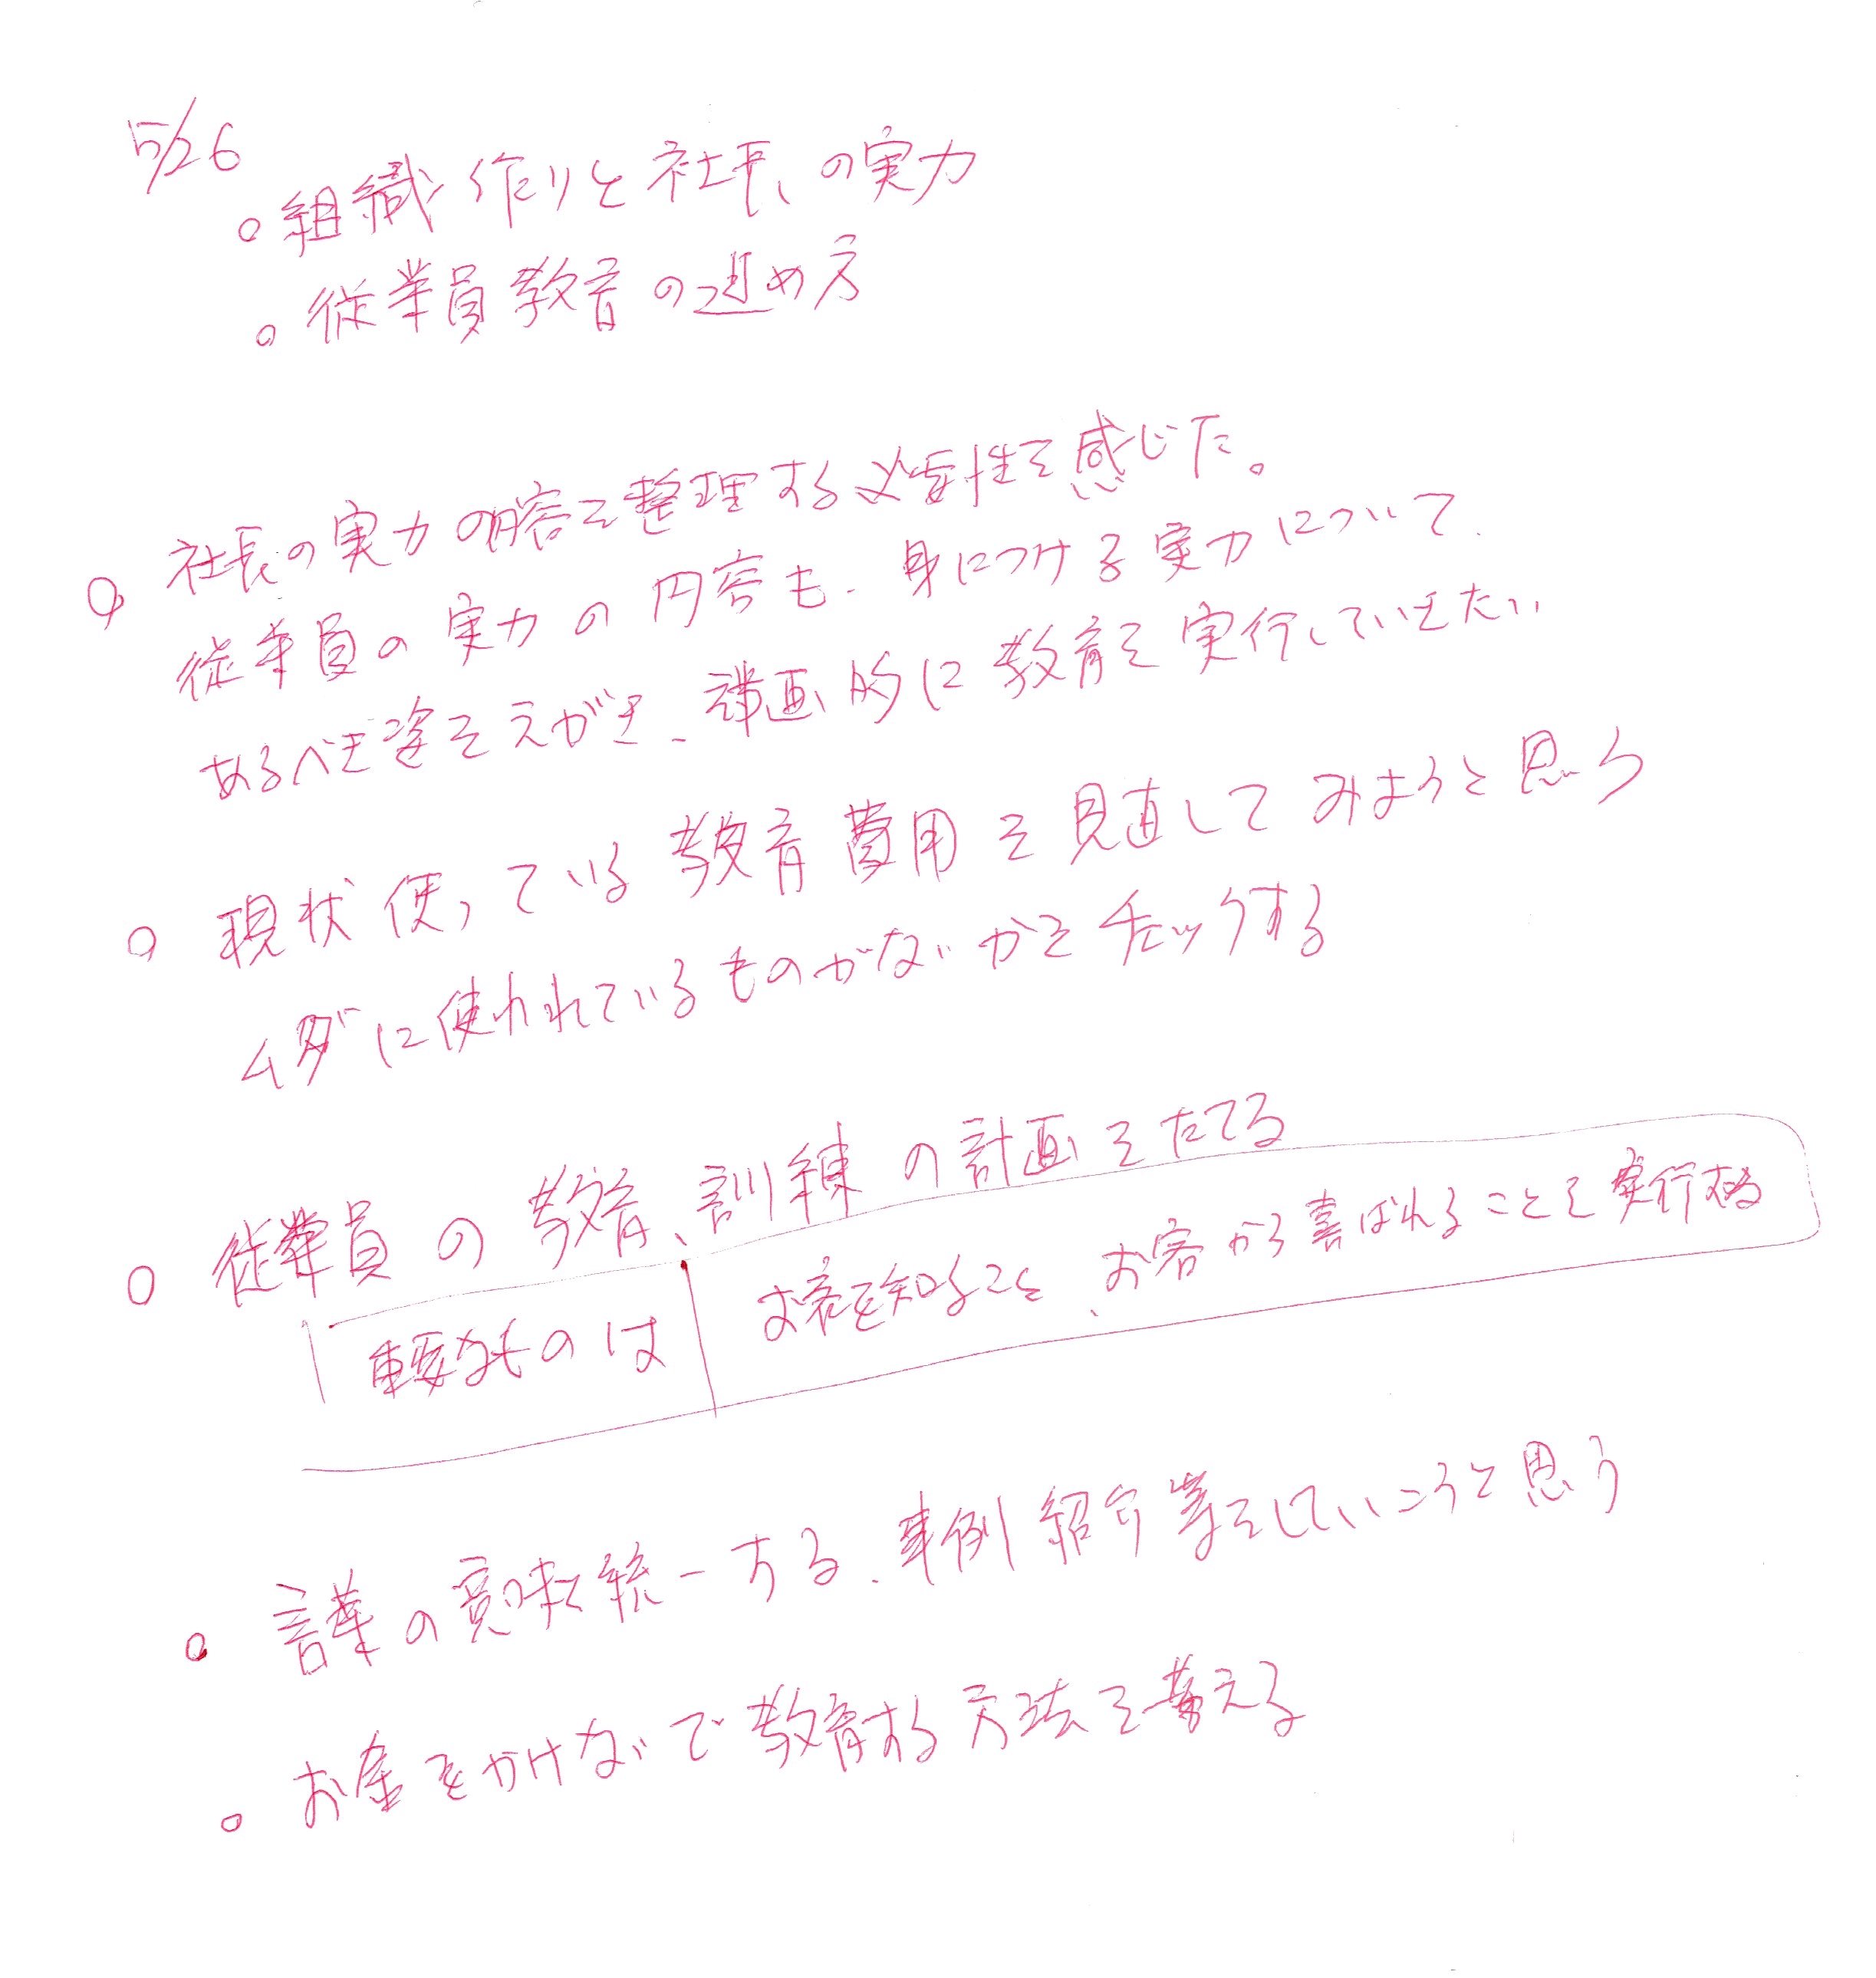 5/26
○ 組織作りと社長の実力
○ 従業員教育の進め方
○ 社長の実力の内容を整理する必要性を感じた。
従業員の実力の内容も、身につける実力について、
あるべき姿をえがき、計画的に教育を実行していきたい
○ 現状使っている教育費用を見直してみようと思う
ムダに使われているものがないかをチェックする
○ 従業員の教育、訓練の計画をたてる
重要なものは お客を知ること、お客から喜ばれることを実行する
○ 言葉の意味を統一する、事例紹介等をしていこうと思う
○ お金をかけないで教育する方法を考える